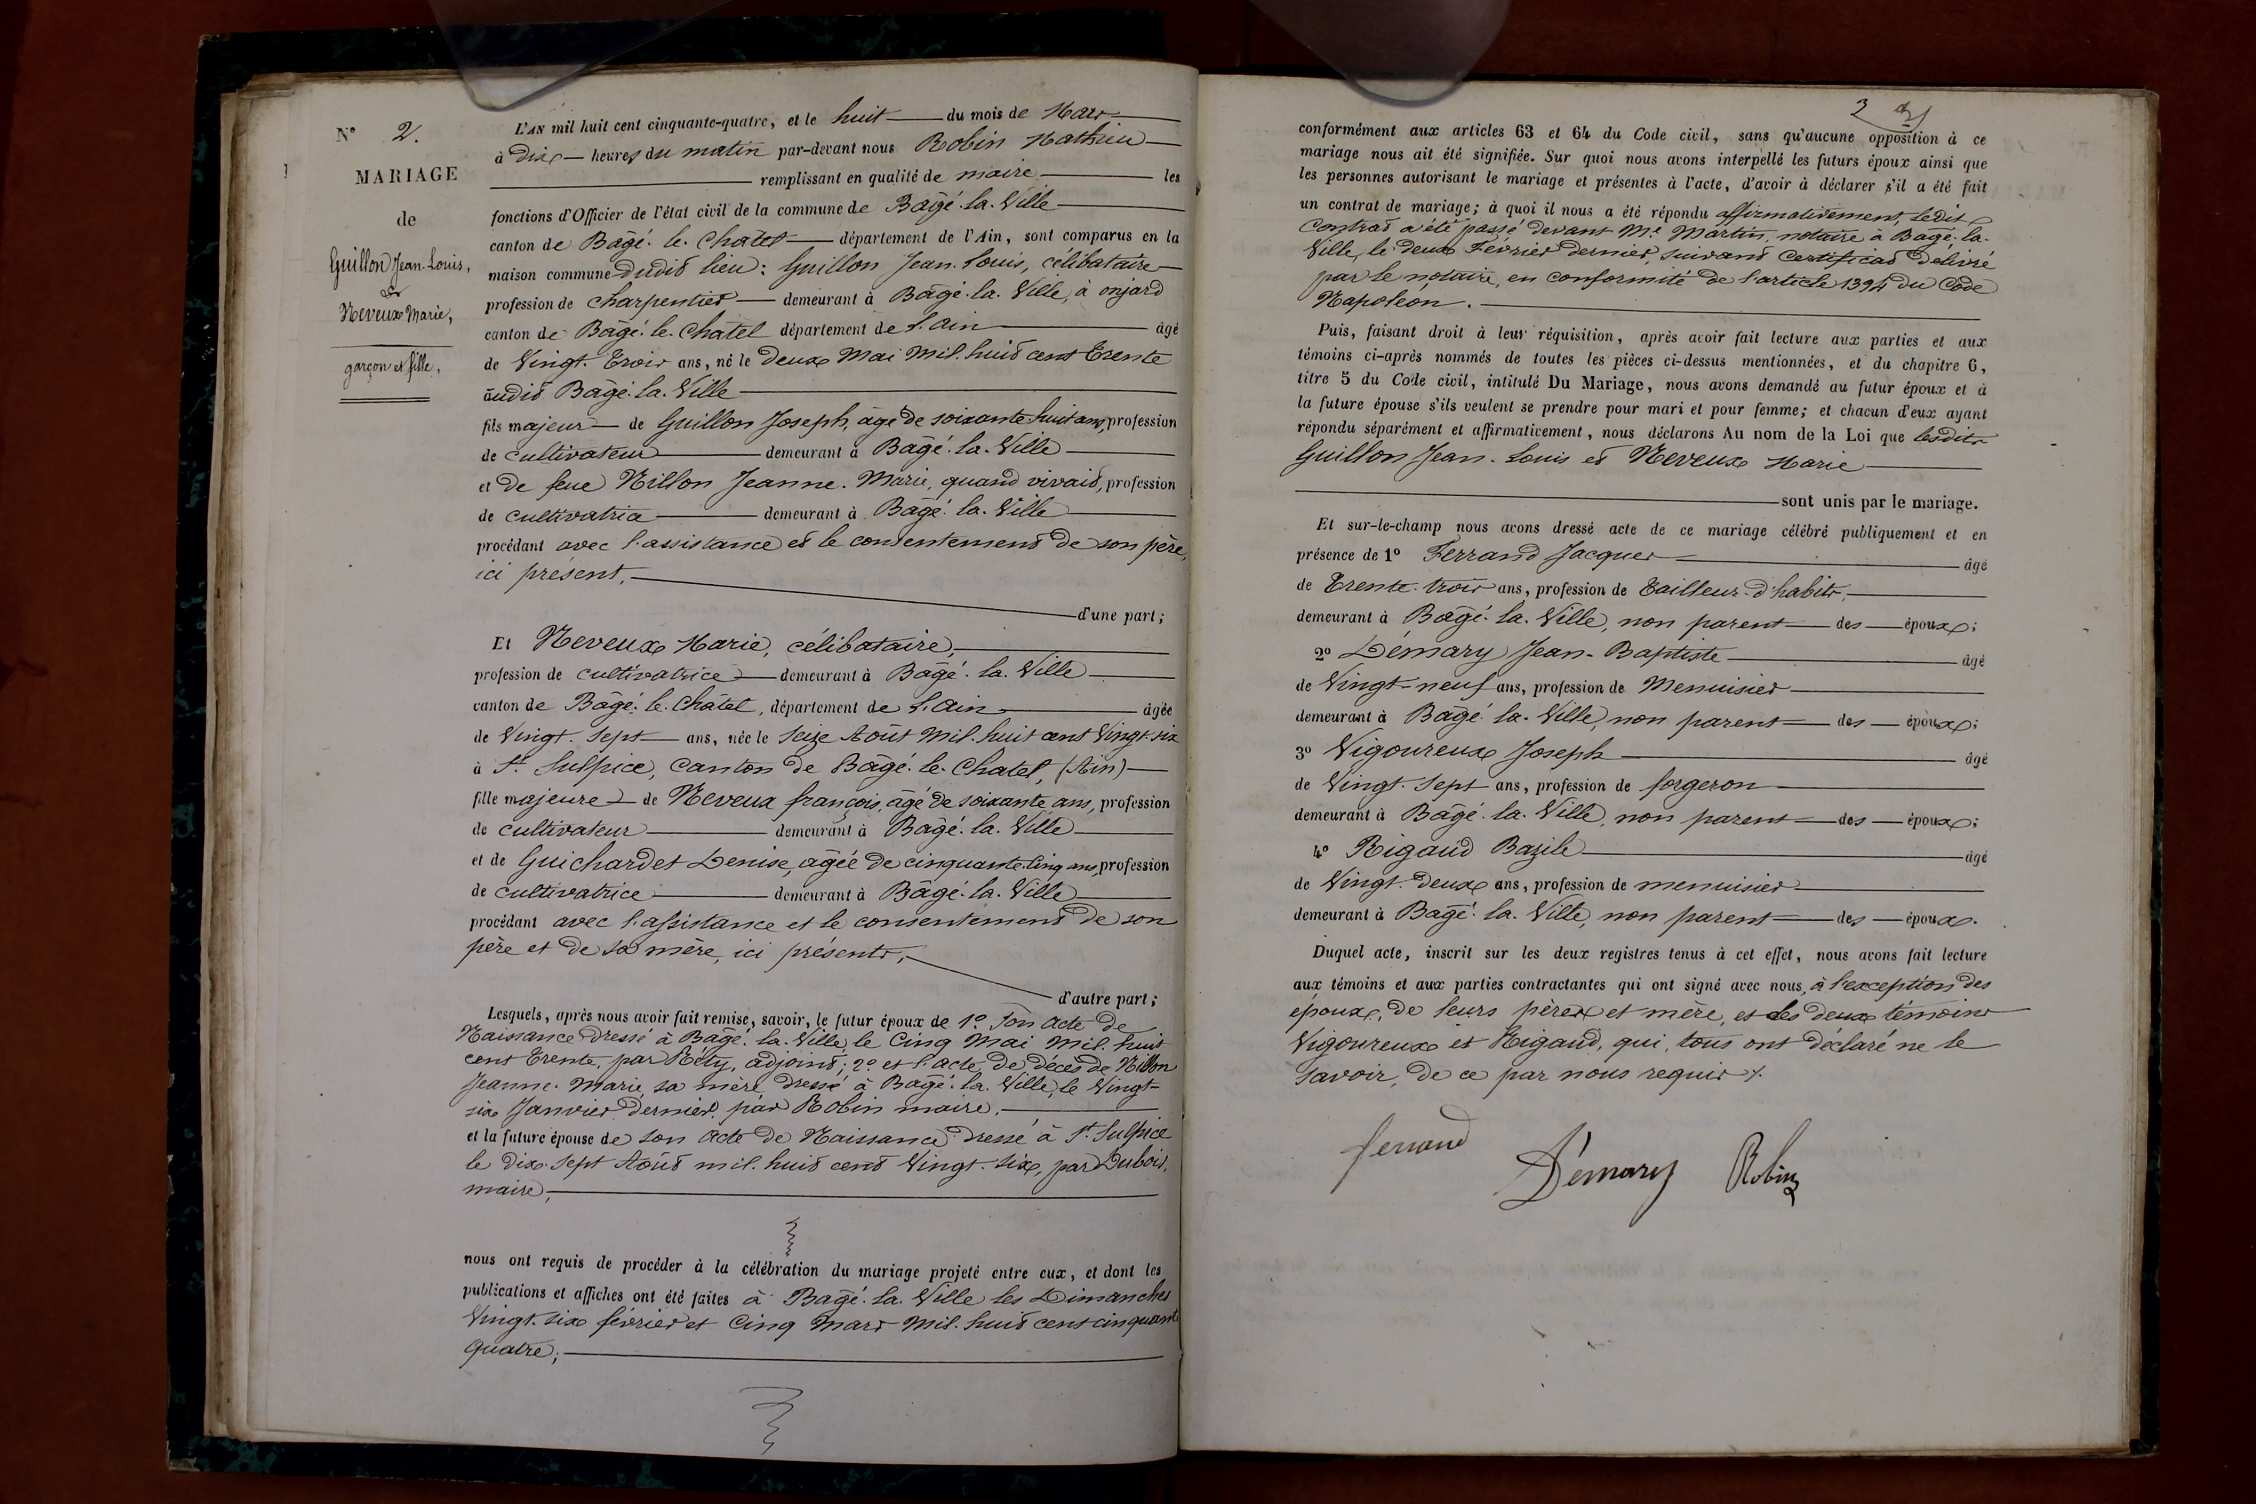 N° 2.
MARIAGE
de
Guillon Jean-Louis,
&
Neveux Marie,
garçon et fille,
L'AN mil huit cent cinquante-quatre, et le huit du mois de Mars
à dix heures du matin par-devant nous Robin Mathieu
remplissant en qualité de maire les
fonctions d'Officier de l'état civil de la commune de Bâgé-la-Ville
canton de Bâgé-le-Chatel département de l'Ain, sont comparus en la
maison commune dudit lieu: Guillon Jean-Louis, célibataire
profession de charpentier demeurant à Bâgé-la-Ville, à onjard
canton de Bâgé-le-Châtel département de l'Ain âgé
de Vingt-Trois ans, né le deux Mai Mil-huit cent Trente
audit Bâgé-la-Ville
fils majeur de Guillon Joseph, âgé de soixante-huit ans, profession
de cultivateur demeurant à Bâgé-la-Ville
et de feue Nillon Jeanne-Marie, quand vivait, profession
de cultivatrice demeurant à Bâgé-la-Ville
procédant avec l'assistance et le consentement de son père,
ici présent,
d'une part;
Et Neveux Marie, célibataire,
profession de cultivatrice demeurant à Bâgé-la-Ville
canton de Bâgé-le-Châtel, département de l'Ain âgée
de Vingt-Sept ans, née le Seize Août Mil-huit cent Vingt-six
à St Sulpice, Canton de Bâgé-le-Chatel, (Ain)
fille majeure de Neveux françois, âgé de soixante ans, profession
de cultivateur demeurant à Bâgé-la-Ville
et de Guichardet Denise, âgée de cinquante-Cinq ans, profession
de cultivatrice demeurant à Bâgé-la-Ville
procédant avec l'assistance et le consentement de son
père et de sa mère, ici présents,
d'autre part;
Lesquels, après nous avoir fait remise, savoir, le futur époux de 1° Son Acte de
Naissance dressé à Bâgé-la-Ville, le Cinq Mai Mil-huit
cent Trente, par Réty, adjoint; 2° et l'acte de décès de Nillon
Jeanne-Marie, sa mère dressé à Bâgé-la-Ville, le Vingt-
six Janvier dernier, par Robin maire.
et la future épouse de son acte de Naissance dressé à St Sulpice
le dix-sept Août mil-huit cent Vingt-six, par Dubois,
maire,
nous ont requis de procéder à la célébration du mariage projeté entre eux, et dont les
publications et affiches ont été faites à Bâgé-la-Ville les Dimanches
Vingt-six février et Cinq Mars Mil-huit cent cinquante
quatre;
2
conformément aux articles 63 et 64 du Code civil, sans qu'aucune opposition à ce
mariage nous ait été signifiée. Sur quoi nous avons interpellé les futurs époux ainsi que
les personnes autorisant le mariage et présentes à l'acte, d'avoir à déclarer s'il a été fait
un contrat de mariage; à quoi il nous a été répondu affirmativement, ledit
Contrat a été passé devant Me Martin, notaire à Bâgé-la-
Ville, le deux Février dernier, suivant Certificat délivré
par le notaire, en conformité de l'article 1394 du Code
Napoléon.
Puis, faisant droit à leur réquisition, après avoir fait lecture aux parties et aux
témoins ci-après nommés de toutes les pièces ci-dessus mentionnées, et du chapitre 6,
titre 5 du Code civil, intitulé Du Mariage, nous avons demandé au futur époux et à
la future épouse s'ils veulent se prendre pour mari et pour femme; et chacun d'eux ayant
répondu séparément et affirmativement, nous déclarons Au nom de la Loi que lesdits
Guillon Jean-Louis et Neveux Marie
sont unis par le mariage.
Et sur-le-champ nous avons dressé acte de ce mariage célébré publiquement et en
présence de 1° Ferrand Jacques âgé
de Trente-trois ans, profession de Tailleur d'habits,
demeurant à Bâgé-la-Ville, non parent des époux;
2° Démary Jean-Baptiste âgé
de Vingt-neuf ans, profession de Menuisier
demeurant à Bâgé-la-Ville, non parent des époux;
3° Vigoureux Joseph âgé
de Vingt-Sept ans, profession de forgeron
demeurant à Bâgé-la-Ville, non parent des époux;
4° Rigaud Bazile âgé
de Vingt-deux ans, profession de menuisier
demeurant à Bâgé-la-Ville, non parent des époux.
Duquel acte, inscrit sur les deux registres tenus à cet effet, nous avons fait lecture
aux témoins et aux parties contractantes qui ont signé avec nous, à l'exception des
époux, de leurs pères et mère, et des deux témoins
Vigoureux et Rigaud, qui, tous ont déclaré ne le
savoir, de ce par nous requis.
ferrand
Démary
Robin